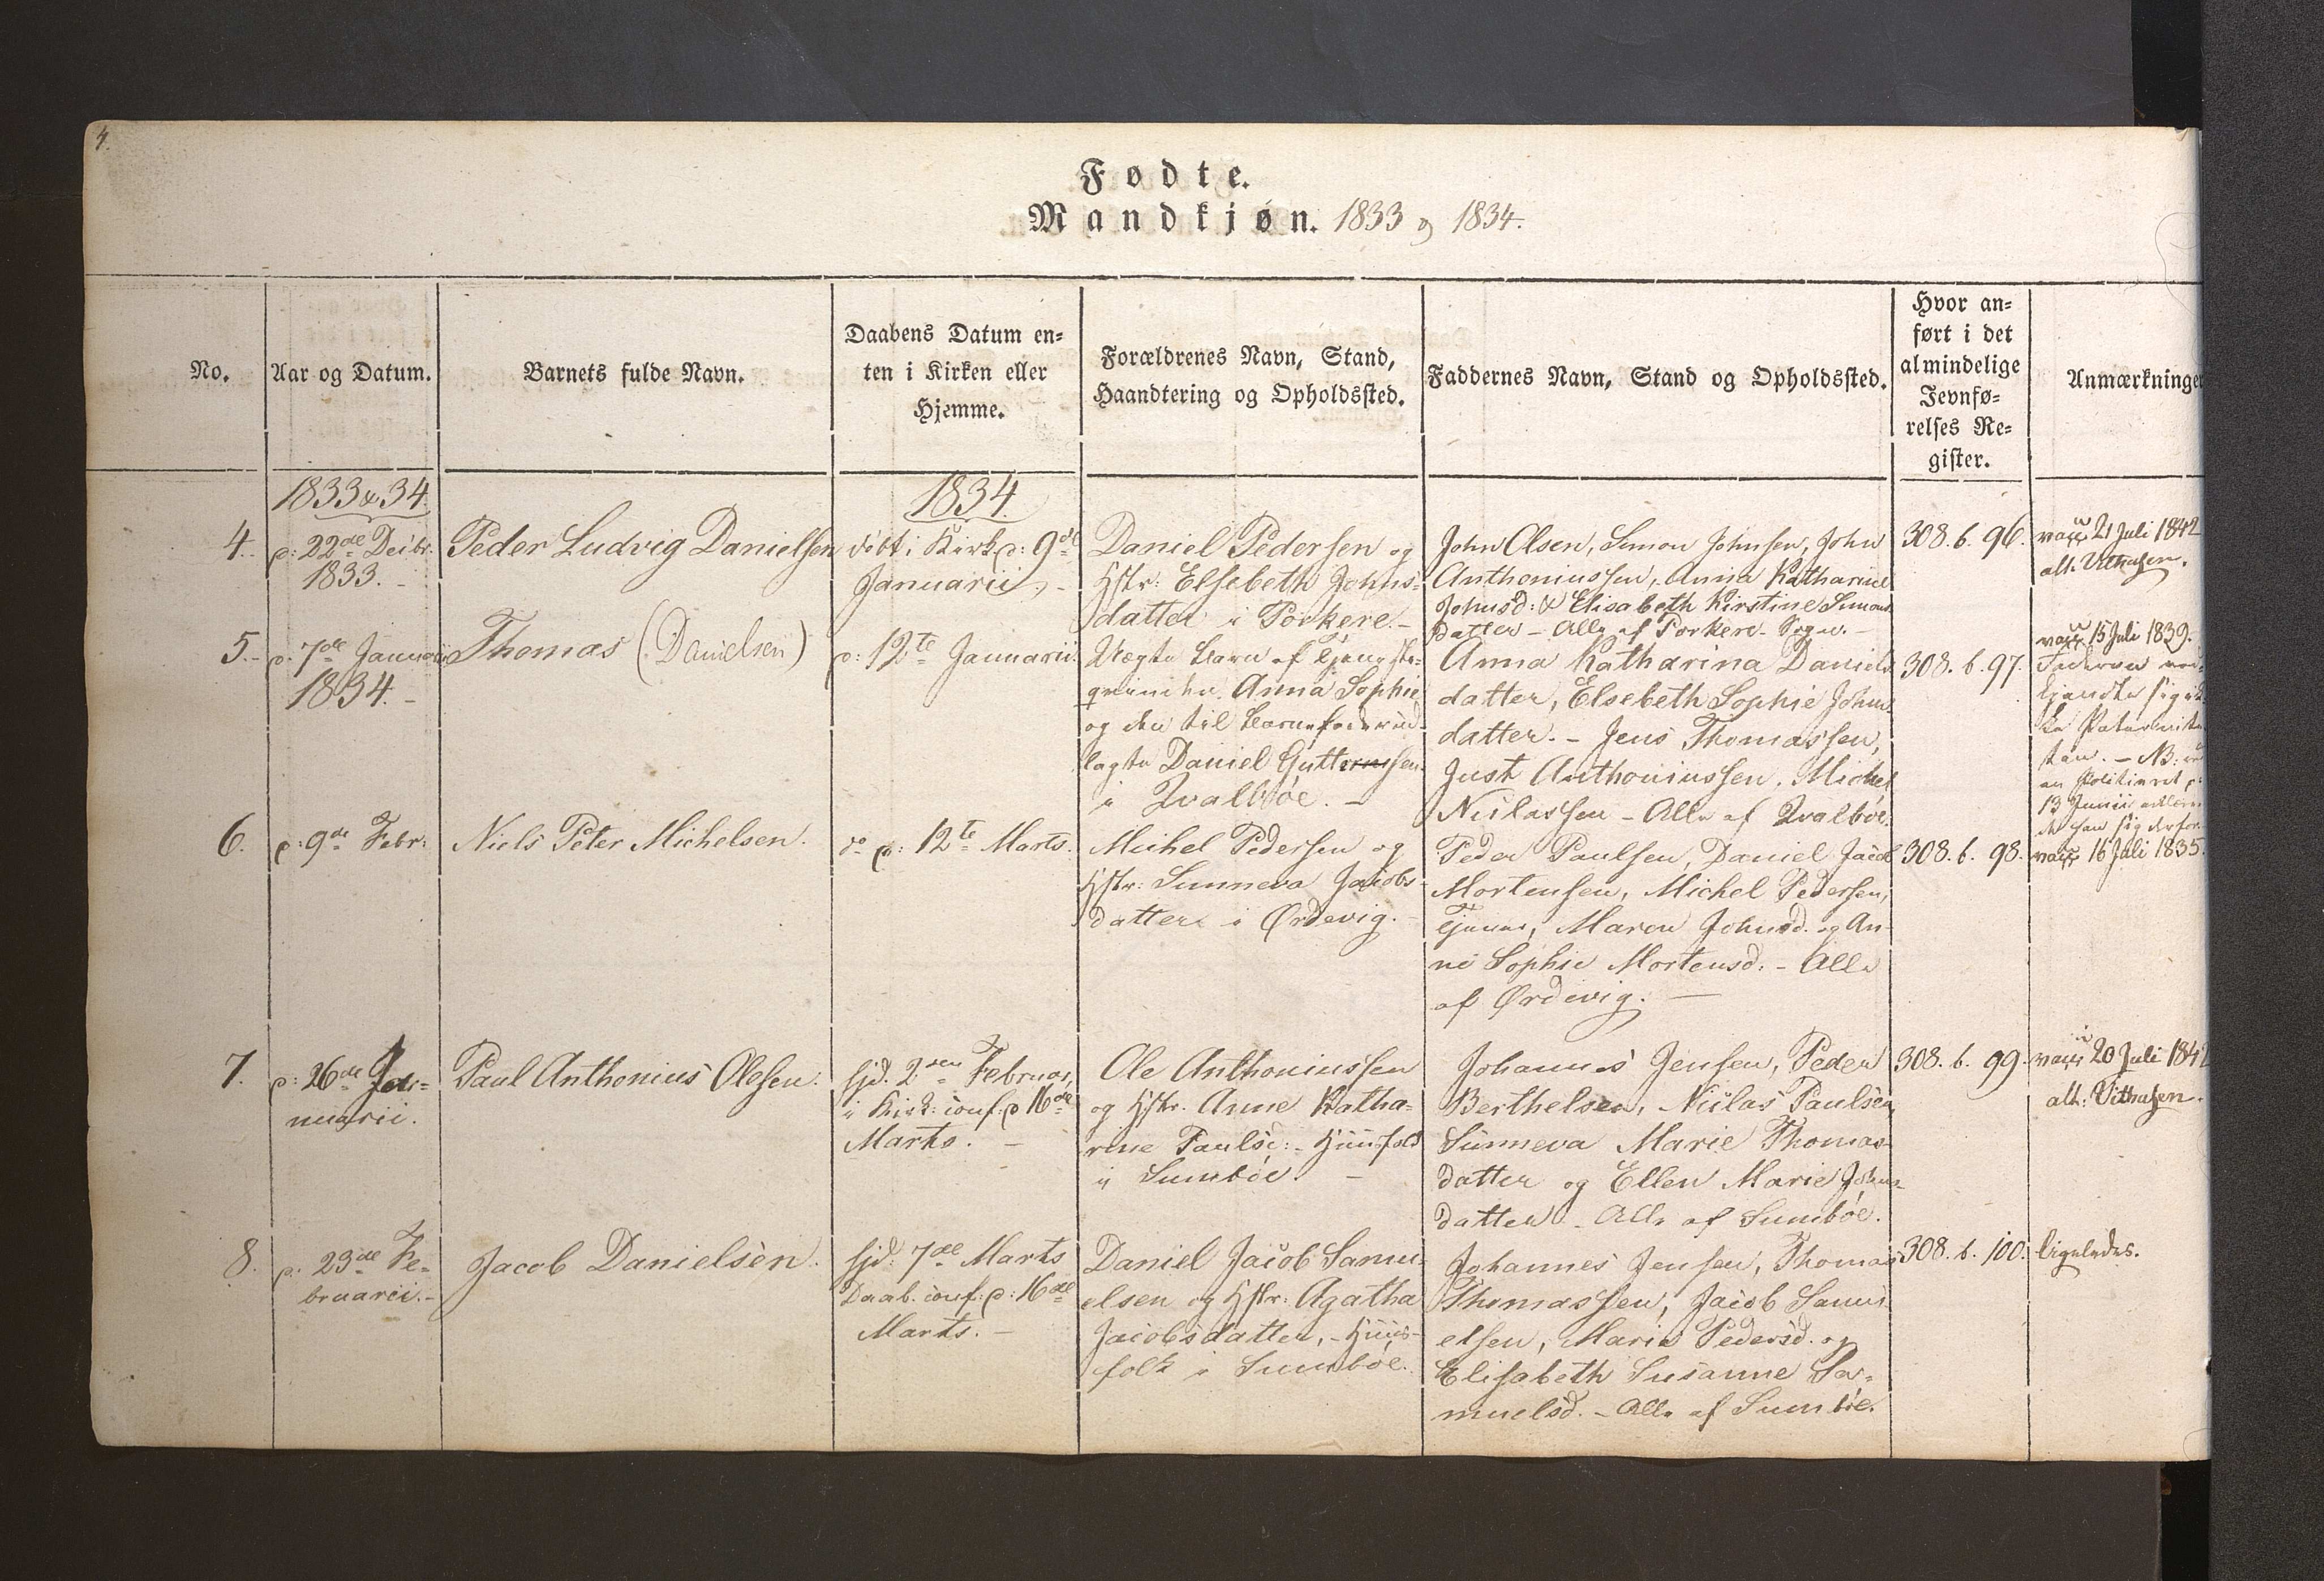 4.
Fødte.
Mandkjøn. 1833 og 1834.
No.
Aar og Datum.
Barnets fulde Navn.
Daabens Datum en-
ten i Kirken eller
Hjemme.
Forældrenes Navn, Stand,
Haandtering og Opholdssted.
Faddernes Navn, Stand og Opholdssted.
Hvor an-
ført i det
almindelige
Jevnfø-
relses Re-
gister.
Anmærkninge
1833 & 34.
4.
d: 22de Decbr:
1833.
Peder Ludvig Danielsen
1834.
döbt i Kirk d: 9de
Januarii.
Daniel Pedersen og
Hstr: Elsebeth Johns-
datter i Porkere.
John Olsen, Simon Johnsen, John
Anthoniussen, Anna Katharine
Johnsd: & Elisabeth Kirstine Simons
datter - Alle af Porkere Sogn.
308. b. 96.
vacc 21 Juli 1842
att. Vithusen.
5.
d: 7de Januarii
1834.
Thomas (Danielsen)
d: 12te Januarii.
Uægte Barn af Tjeneste-
qvinden Anna Sophie,
og den til Barnefader ud-
lagte Daniel Guttormsen
i Qvalböe.
Anna Katharina Daniels
datter, Elsebeth Sophie Johns-
datter. - Jens Thomassen,
Just Anthoniussen, Michel
Niclassen - Alle af Qvalböe.
308. b. 97.
vacc 15 Juli 1839.
Faderen ved-
kjendte sig ik
ke Paternite
ten. - NB:
13 Junii
6.
d: 9de Febr:
Niels Peter Michelsen.
do d: 12te Marts.
Michel Pedersen og
Hstr: Sunneva Jacobs-
datter i Ørdevig.
Peder Paulsen, Daniel Jacob
Mortensen, Michel Pedersen,
Tjener, Maren Johnsd. og An-
ne Sophie Mortensd. - Alle
af Ørdevig.
308. b. 98.
vacc 16 Juli 1835.
7.
d: 26de Ja-
nuarii.
Paul Anthonius Olesen.
hjd. 2den Februar,
i Kirk: conf: d 16de
Marts.
Ole Anthoniussen
og Hstr. Anne Katha-
rine Paulsd: - Huusfolk
i Sumböe.
Johannes Jensen, Peder
Berthelsen, Niclas Paulsen
Sunneva Marie Thomas-
datter og Ellen Marie Johns-
datter - Alle af Sumböe.
308. b. 99.
vacc 20 Juli 184
att: Vithusen.
8.
d: 23de Fe-
bruarii.
Jacob Danielsen.
hjd: 7de Marts
Daab. conf: d: 16de
Marts.
Daniel Jacob Samu-
elsen og Hstr: Agatha
Jacobsdatter, - Huus-
folk i Sumböe.
Johannes Jensen, Thomas
Thomassen, Jacob Samu-
elsen, Maria Pedersd. og
Elisabeth Susanne Sa-
muelsd. - Alle af Sumböe.
308. b. 100.
ligeledes.